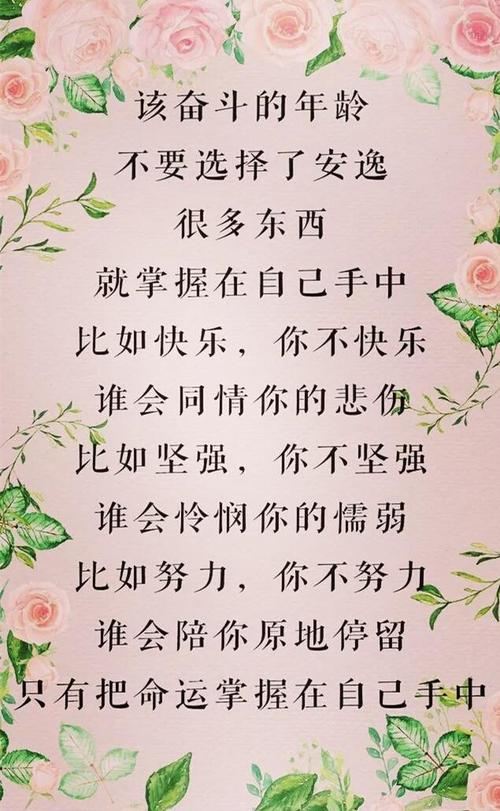 该奋斗的年龄
不要选择了安逸
很多东西
就掌握在自己手中
比如快乐，你不快乐
谁会同情你的悲伤
比如坚强，你不坚强
谁会怜悯你的懦弱
比如努力，你不努力
谁会陪你原地停留
只有把命运掌握在自己手中